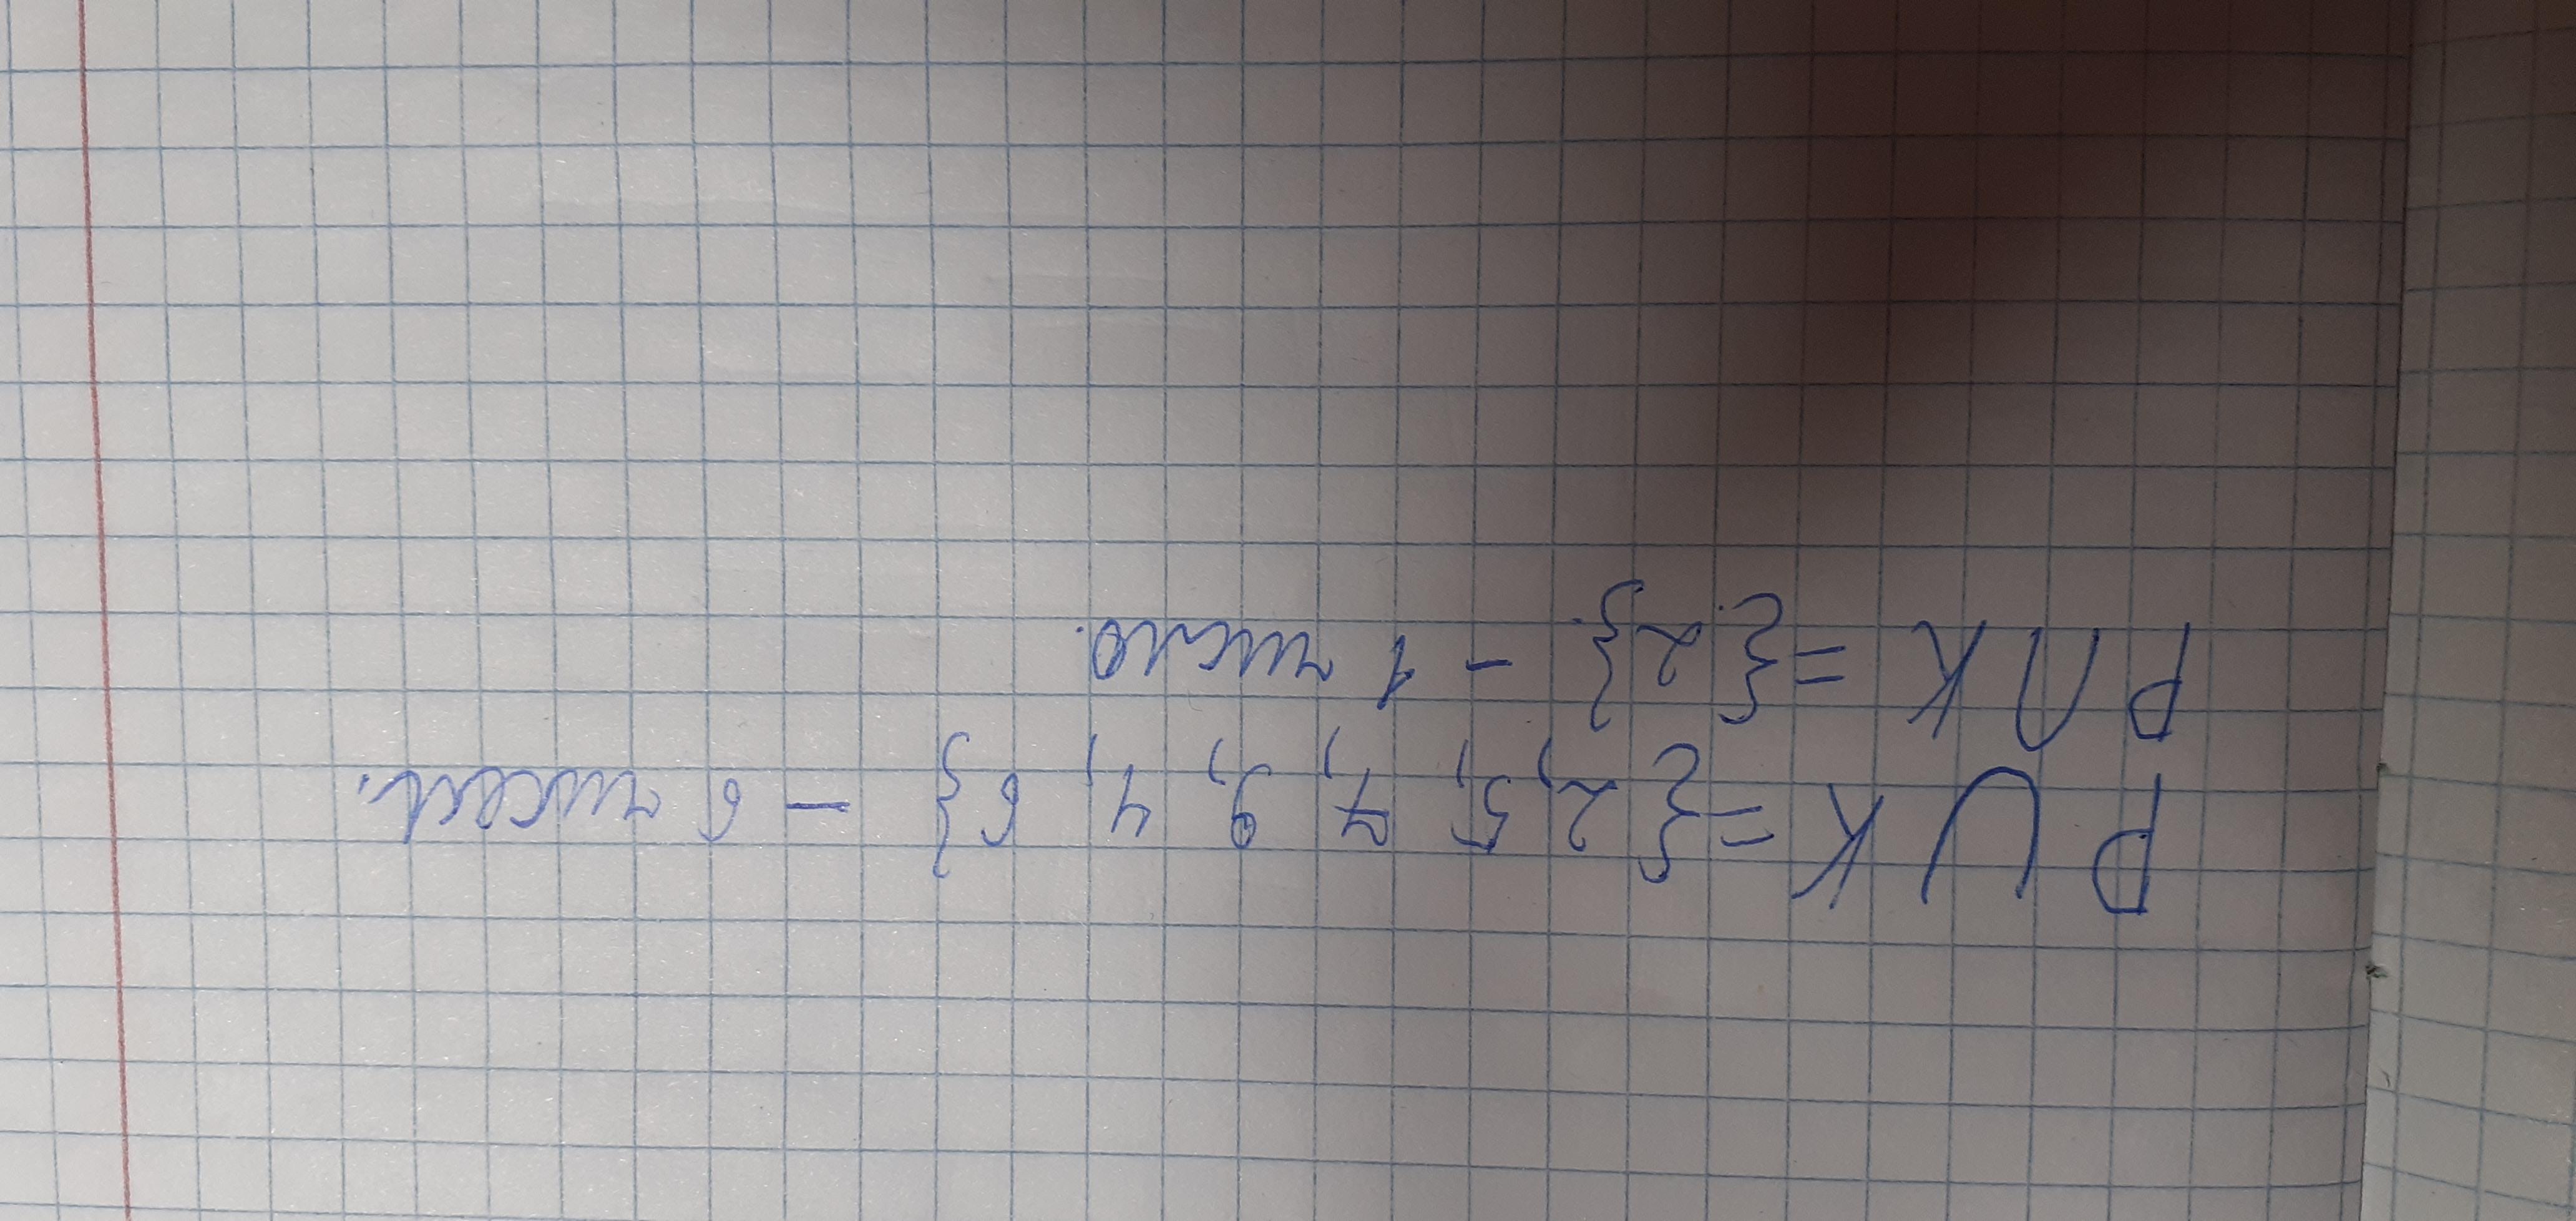 P ∪ K = {2, 5, 7, 9, 4, 6} – 6 чисел.
P ∩ K = {2} – 1 число.